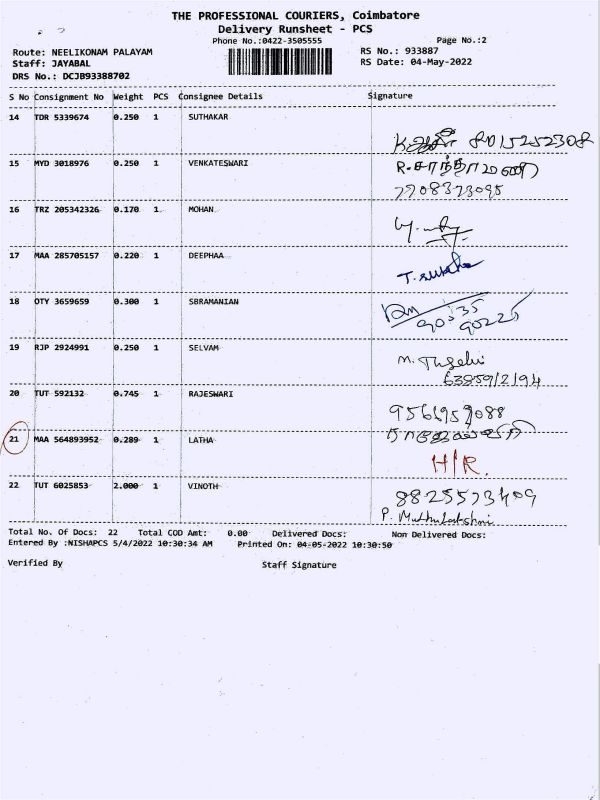 THE PROFESSIONAL COURIERS, Coimbatore
Delivery Runsheet - PCS
Phone No.:0422-3505555 Page No.:2
Route: NEELIKONAM PALAYAM RS No.: 933887
Staff: JAYABAL RS Date: 04-May-2022
DRS No.: DCJB93388702
S No Consignment No Weight PCS Consignee Details Signature
14 TDR 5339674 0.250 1 SUTHAKAR
15 MYD 3018976 0.250 1 VENKATESWARI
R.சாந்தாமணி
7708373095
16 TRZ 205342326 0.170 1 MOHAN
17 MAA 285705157 0.220 1 DEEPHAA
18 OTY 3659659 0.300 1 SBRAMANIAN
19 RJP 2924991 0.250 1 SELVAM
20 TUT 592132 0.745 1 RAJESWARI
21 MAA 564893952 0.289 1 LATHA
H/R.
22 TUT 6025853 2.000 1 VINOTH
P. Muthulakshmi
Total No. Of Docs: 22 Total COD Amt: 0.00 Delivered Docs: Non Delivered Docs:
Entered By :NISHAPCS 5/4/2022 10:30:34 AM Printed On: 04-05-2022 10:30:50
Verified By Staff Signature